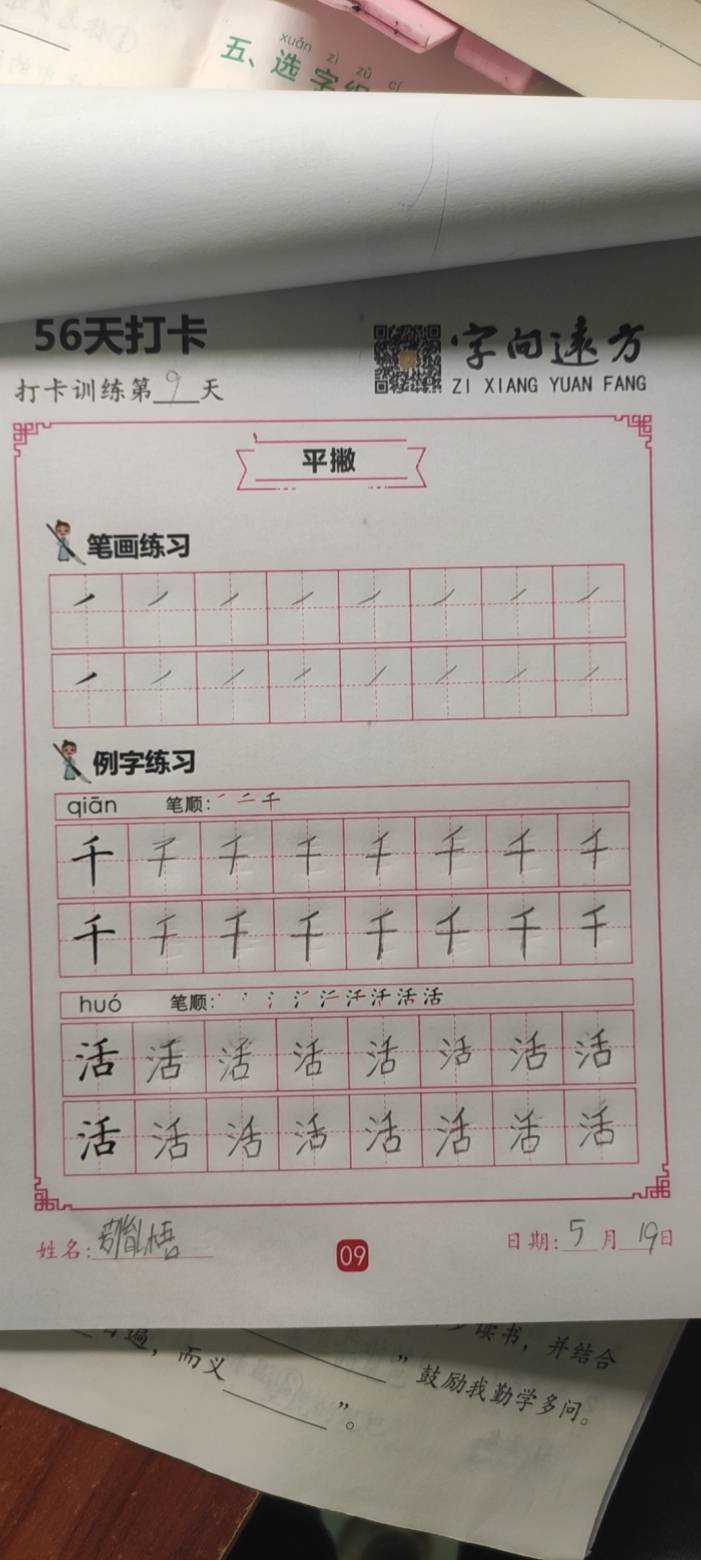 xuǎn zì zǔ cí
五、选字组
56天打卡
字向遠方
打卡训练第9天
ZI XIANG YUAN FANG
平撇
笔画练习
例字练习
qiān 笔顺:
千千千千千千千千
千千千千千千千千
huó 笔顺:
活活活活活活活活
活活活活活活活活
姓名:
09
日期:5月19日
读书，并结合
遍，而义
”鼓励我勤学多问。
”。